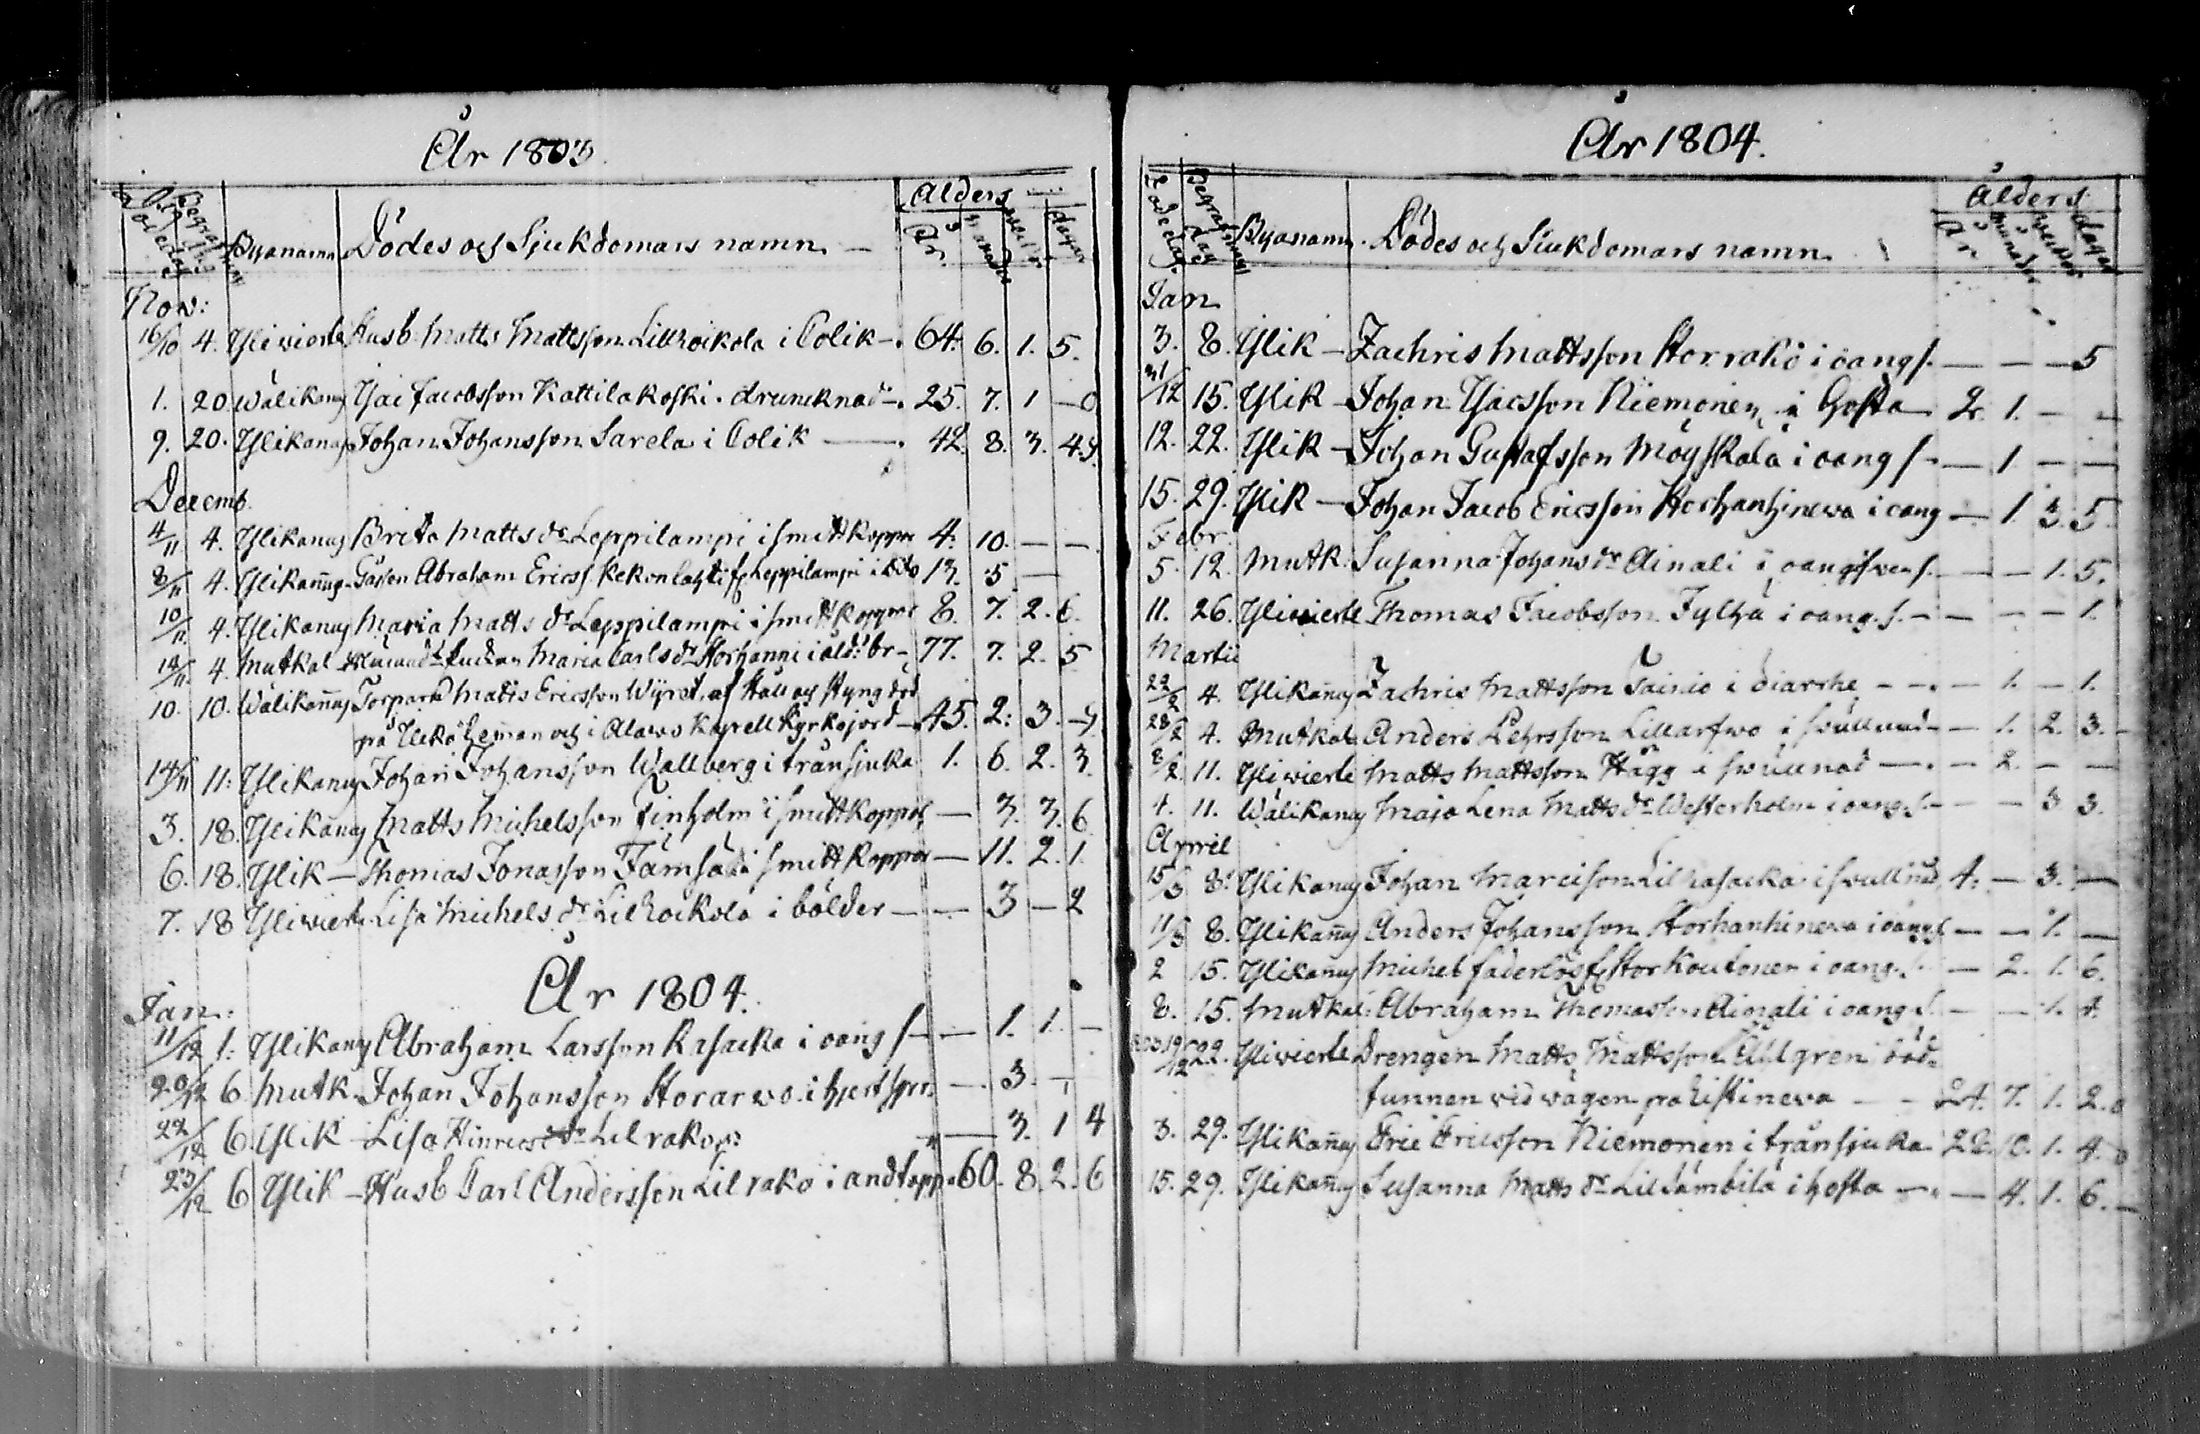 År 1803.
Dödedag Begrafnings dag Byanamn Dödes och Sjukdomars namn Ålders År månader veckor dagar
Nov:
16/10 4. Yliwierte Husb. Matts Mattsson Lillroikola i Colik 64. 6. 1. 5.
1. 20. Wälikany Isac Jacobsson Kattilakoski. drunknad 25. 7. 1 — 0
9. 20. Ylikany Johan Johansson Sarela i Colik 42. 8. 3. 4.
Decemb.
4/11 4. Ylikany Brita Matts dr Leppilampi i smittkoppor 4. 10. — —
8/11 4. Ylikañy Gåssen Abraham Ericss. Kekonlahti fr Leppilampi i dito 13. 5 —
10/11 4. Ylikany Maria Matts dr Leppilampi i smittkoppor 8. 7. 2. 6.
12/11 4. Mutkal Enkan Maria Carlsdr Storhanni i åld: br 77. 7. 2. 5
10. 10. Wälikañy Torparn Matts Ericsson Wyrst. af Håll och Styng död
på Ilekö Heman och i Alawo Kapell Kyrkojord 45. 2: 3. —
14/11 11: Ylikany Johan Johansson Wallberg i trånsjuka 1. 6. 2. 3.
3. 18. Ylikañy Matts Michelsson Finholm i smittkoppor — 3. 3. 6.
6. 18. Ylik — Thomas Jonasson Tämsä i smittkoppor — 11. 2. 1.
7. 18 Yliwierte Lisa Michels dr Lilroikola i bölder — — 3 — 2
År 1804.
Jan:
11/12 1: Ylikany Abraham Larsson Rasacka i oäng s — — 1. 1. —
20/12 6 Mutk. Johan Johansson Storarwo i hjertspr. — 3. —
22/12 6. Ylik — Lisa Hinrics dr Lilrako — 3. 1 4
23/12 6 Ylik — Husb Carl Andersson Lilrako i andtäppa 60. 8. 2. 6
År 1804.
Dödedag. Begrafnings dag Byanamn. Dödes och Siukdomars namn Ålders År månader veckor dagar
Jan
3. 8. Ylik — Zachris Mattsson Storrako i oäng s. — — — 5
31/12 15. Ylik — Johan Isacsson Niemonen i Hosta 2. 1. — —
12. 22. Ylik — Johan Gustafsson Möyskälä i oäng s — 1 — —
15. 29. Ylik — Johan Jacob Ericsson Storhanhinewa i oäng — 1. 3. 5.
Febr.
5. 12. Mutk. Susanna Johans dr Ainali i oäng s. — — 1. 5.
11. 26. Yliwierte Thomas Jacobsson Jylhä i oäng. s. — — — 1.
Martii
22/2 4. Ylikañy Zachris Mattsson Sainio i diarrhe — 1. — 1.
28/2 4. Mutkal Anders Pehrsson Lillarfwo i swullnad — 1. 2. 3.
8/2 11. Yliwierte Matts Mattsson Hägg i swullnad — 2. — —
4. 11. Wälikany Maja Lena Matts dr Westerholm i oäng. s. — — 3 3.
April
15/3 8. Ylikany Johan Marcisson Lilrasacka i swullnad 4. — 3. —
11/3 8. Ylikañy Anders Johansson Storhanhinewa i oäng s — — 1. —
2 15. Ylikañy Michel faderlös fr Storkoutonen i oäng. s. — 2. 1. 6.
8. 15. Mutkal. Abraham Thomasson Ainali i oäng. s. — — 1. 4.
1803 19/12 22. Yliwierte Drengen Matts Mattsson Ahlgren död
funnen vid vägen på Ristinewa — 24. 7. 1. 2.
3. 29. Ylikañy Eric Ericsson Niemonen i trånsjuka 28. 10. 1. 4.
15. 29. Ylikañy Susanna Matts dr Lilsämbilä i hosta — 4. 1. 6. —